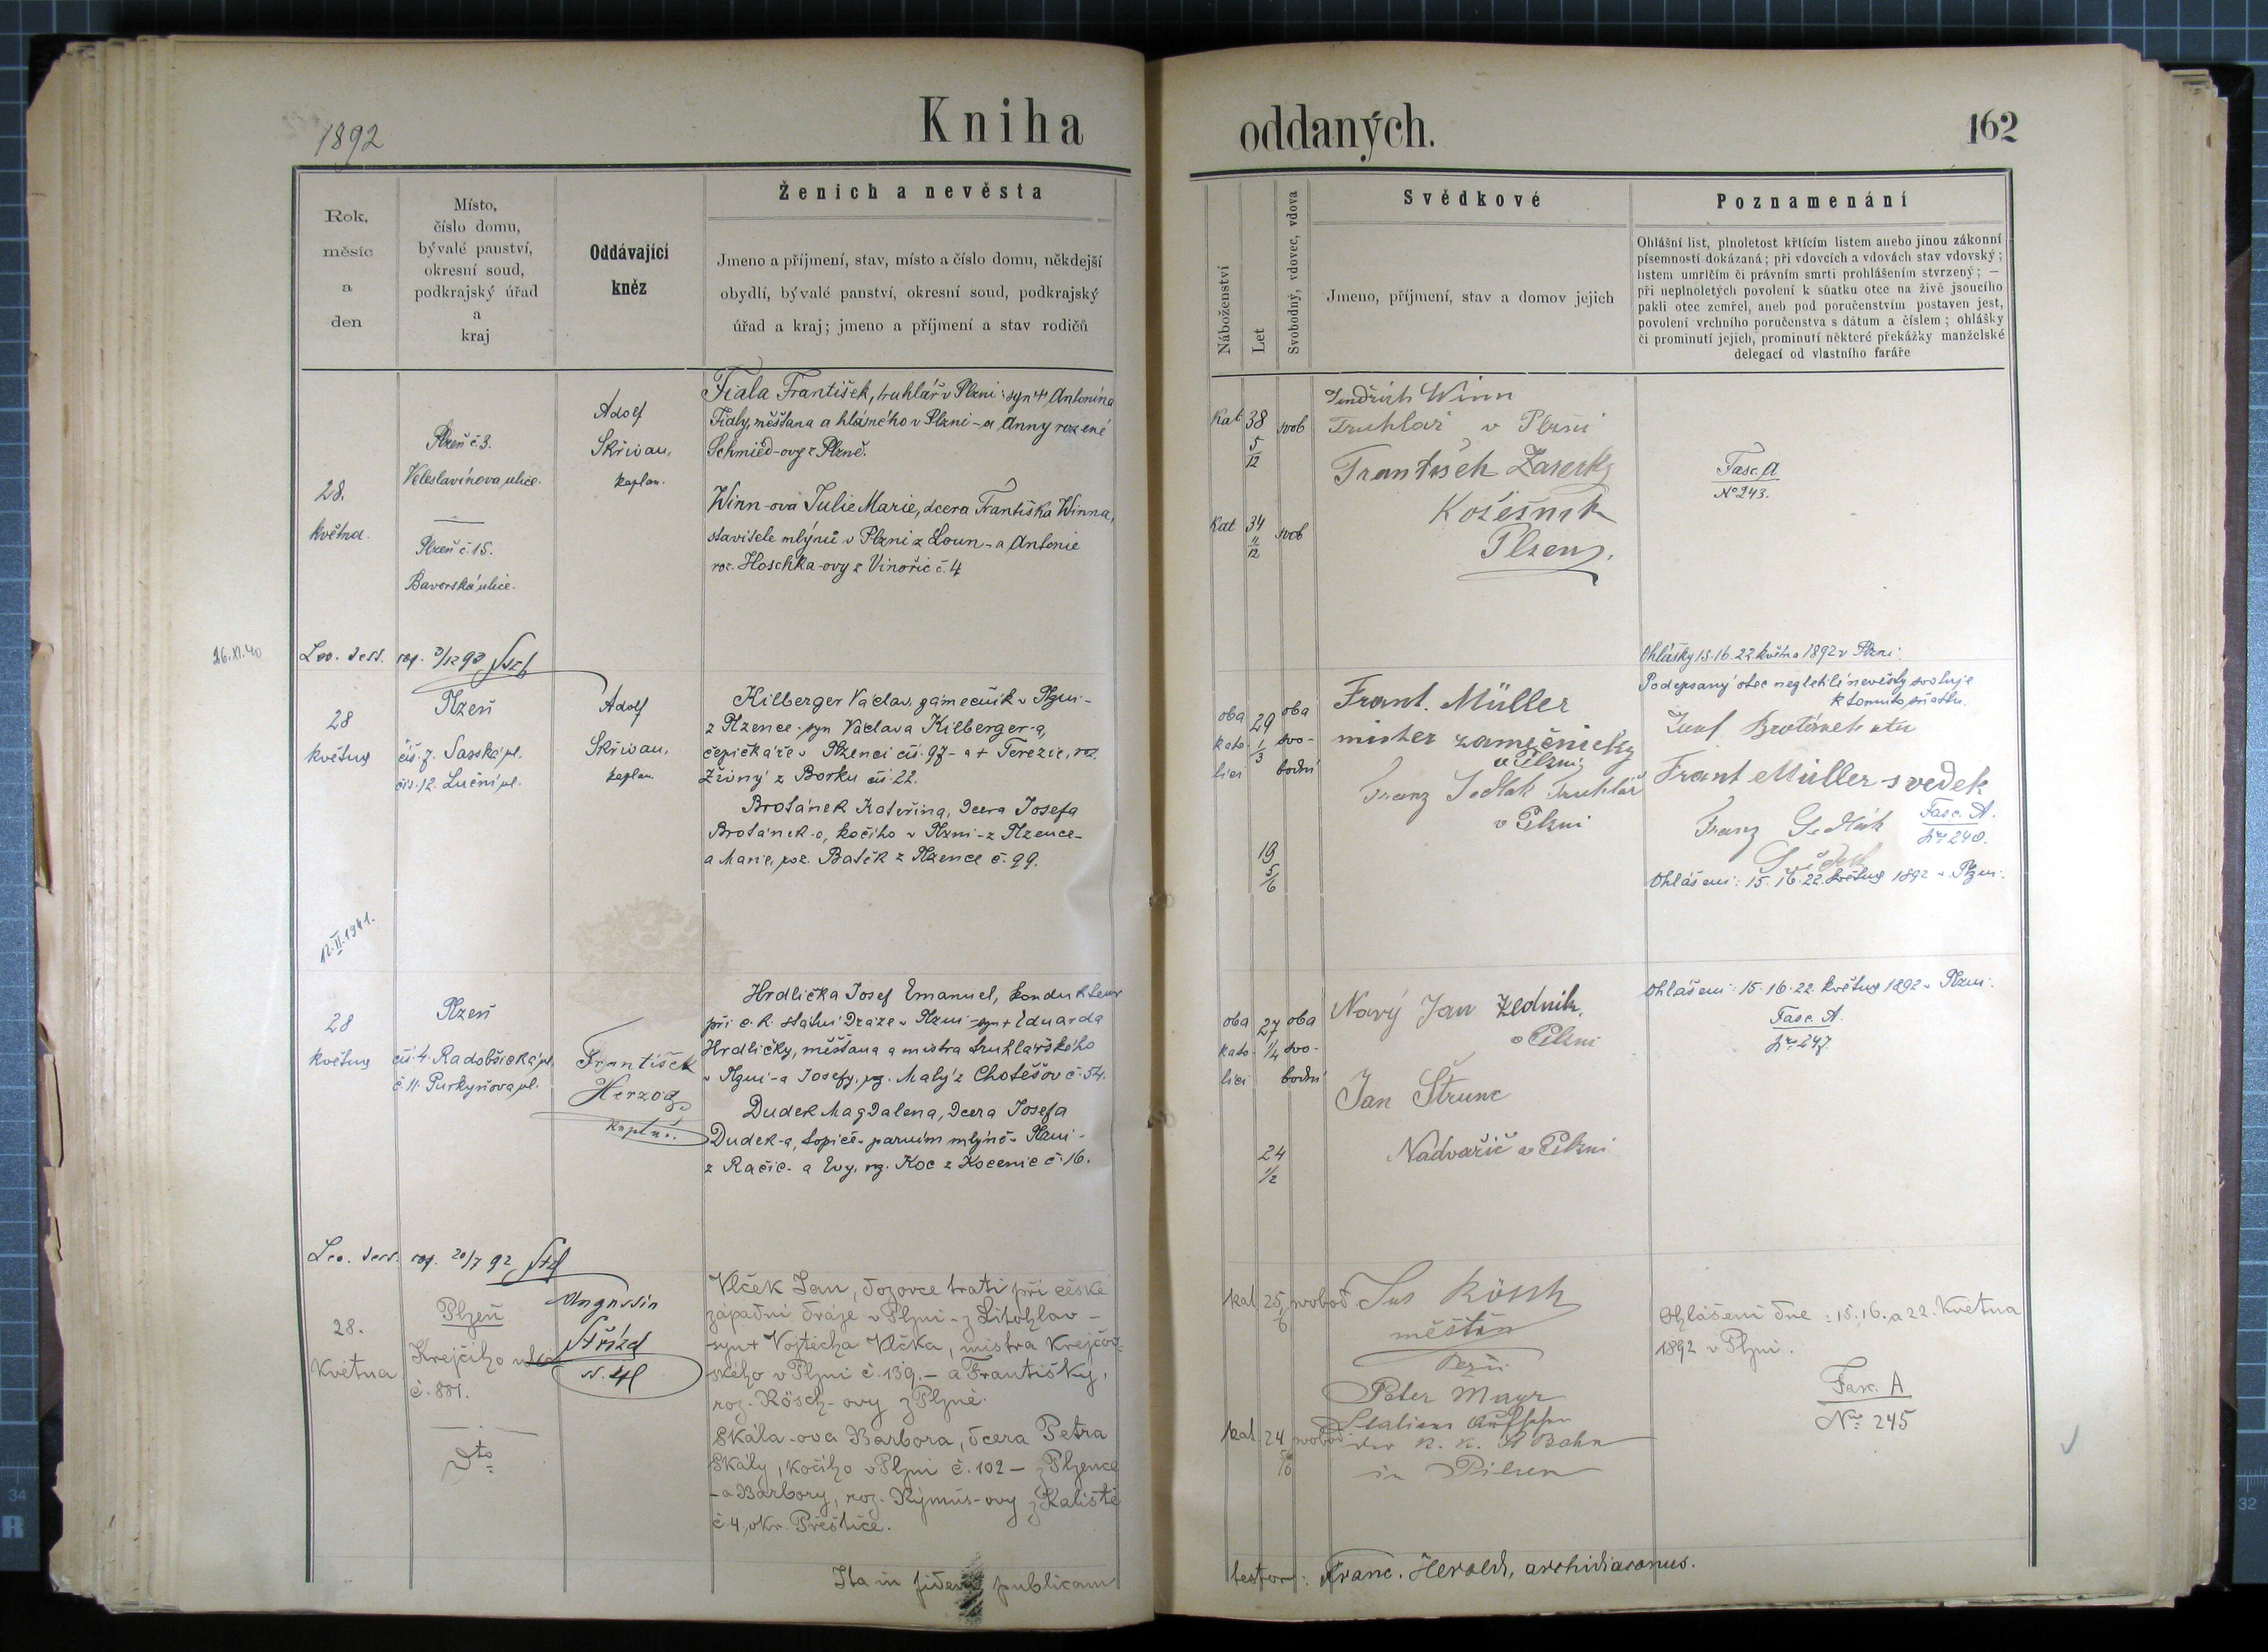 1892
Kniha
oddaných.
162
Rok,
měsíc
a
den
Místo,
číslo domu,
bývalé panství,
okresní soud,
podkrajský úřad
a
kraj
Oddávající
kněz
Ženich a nevěsta
Jmeno a příjmení, stav, místo a číslo domu, někdejší
obydlí, bývalé panství, okresní soud, podkrajský
úřad a kraj; jmeno a příjmení a stav rodičů
Náboženství
Let
Svobodný, vdovec, vdova
Svědkové
Jmeno, příjmení, stav a domov jejich
Poznamenání
Ohlášní list, plnoletost křtícím listem anebo jinou zákonní
písemností dokázaná; při vdovcích a vdovách stav vdovský;
listem umrlčím či právním smrti prohlášením stvrzený; —
při neplnoletých povolení k sňatku otce na živě jsoucího
pakli otec zemřel, aneb pod poručenstvím postaven jest,
povolení vrchního poručenstva s dátum a číslem; ohlášky
či prominutí jejich, prominutí některé překážky manželské
delegací od vlastního faráře
28.
května.
Plzeň č. 3.
Veleslavínova ulice.
Plzeň č. 15.
Bavorská ulice.
Adolf
Skřivan,
kaplan.
Fiala František, truhlář v Plzni: syn + Antonína
Fialy, měšťana a hlásného v Plzni - a Anny rozené
Schmied-ovy z Plzně.
Winn-ová Julie Marie, dcera Františka Winna,
stavitele mlýnů v Plzni z Loun - a Antonie
roz. Hoschka-ovy z Vinořic č. 4
Kat 38 5/12 svob
Kat 34 11/12 svob
Jindřich Winn
Truhlář v Plzni
František
Kožešník
Plzeň.
Fasc. A
No 243.
26.XI.40
Ohlášky 15. 16. 22. května 1892 v Plzni.
28
května
Plzeň
čís. 7. Sasská ul.
čís. 12. Luční ul.
Adolf
Skřivan,
kaplan.
Kilberger Václav, zámečník v Plzni -
z Plzence - syn Václava Kilberger-a,
čepičkáře v Plzenci čís. 97 - a + Terezie, roz.
z Borku čís. 22.
Brotánek Kateřina, dcera Josefa
Brotánek-a, kočího v Plzni - z Plzence -
a Marie, roz. Batěk z Plzence č. 99.
oba
kato-
líci
29 1/3
oba
svo-
bodní
19 5/6
Frant. Müller
mister zamečnicky
v Plzni
Franz Sedlak Truhlář
v Plzni
Podepsaný otec nezletilé nevěsty svoluje
k tomuto sňatku.
Josef Brotánek otec
Frant Müller svedek
Franz Sedlák
Svědek
Fasc. A.
No 240.
Ohlášení: 15. 16. 22. května 1892 v Plzni.
12.II.1941.
28
května
Plzeň
čís. 4. Radobčická ul.
č. 11. Purkyňova ul.
František
Herzog
kaplan.
Hrdlička Josef Emanuel, kondukteur
při c. k. státní dráze v Plzni - syn + Eduarda
Hrdličky, měšťana a mistra truhlařského
v Plzni - a Josefy, roz. Malý z Chotěšov č. 54.
Dudek Magdalena, dcera Josefa
Dudek-a, topiče v parním mlýně v Plzni -
z Račic - a Evy, roz. Koc z Kocenic č. 16.
oba
kato-
líci
27 1/4
oba
svo-
bodní
24 1/2
Nový Jan zednik
v Plzni
Jan Štrunc
Nádvařič v Plzni
Ohlášení: 15. 16. 22. května 1892 v Plzni.
Fasc. A.
No 247.
28.
Května
Plzeň
Krejčího ulice
č. 881.
dto
Augustin
Střízd
Vlček Jan, dozorce trati při české
západní dráze v Plzni - z Litohlav -
syn + Vojtěcha Vlčka, mistra krejčov-
ského v Plzni č. 139. - a Františky,
roz. Rösch-ovy z Plzně.
Skála-ova Barbora, dcera Petra
Skály, kočího v Plzni č. 102 - z Plzence
- a Barbory, roz. Rýmus-ovy z Kaliště
č. 4, okr. Přeštice.
kat 25 svobod.
kat 24 svobod.
Rösch
měšťan
Peter Mayr
Bahn
in Pilsen
Ohlášení dne: 15., 16. a 22. Května
1892 v Plzni.
Fasc. A
No 245
Ita in fidem publicam
testor: Franc. Herold, archidiaconus.